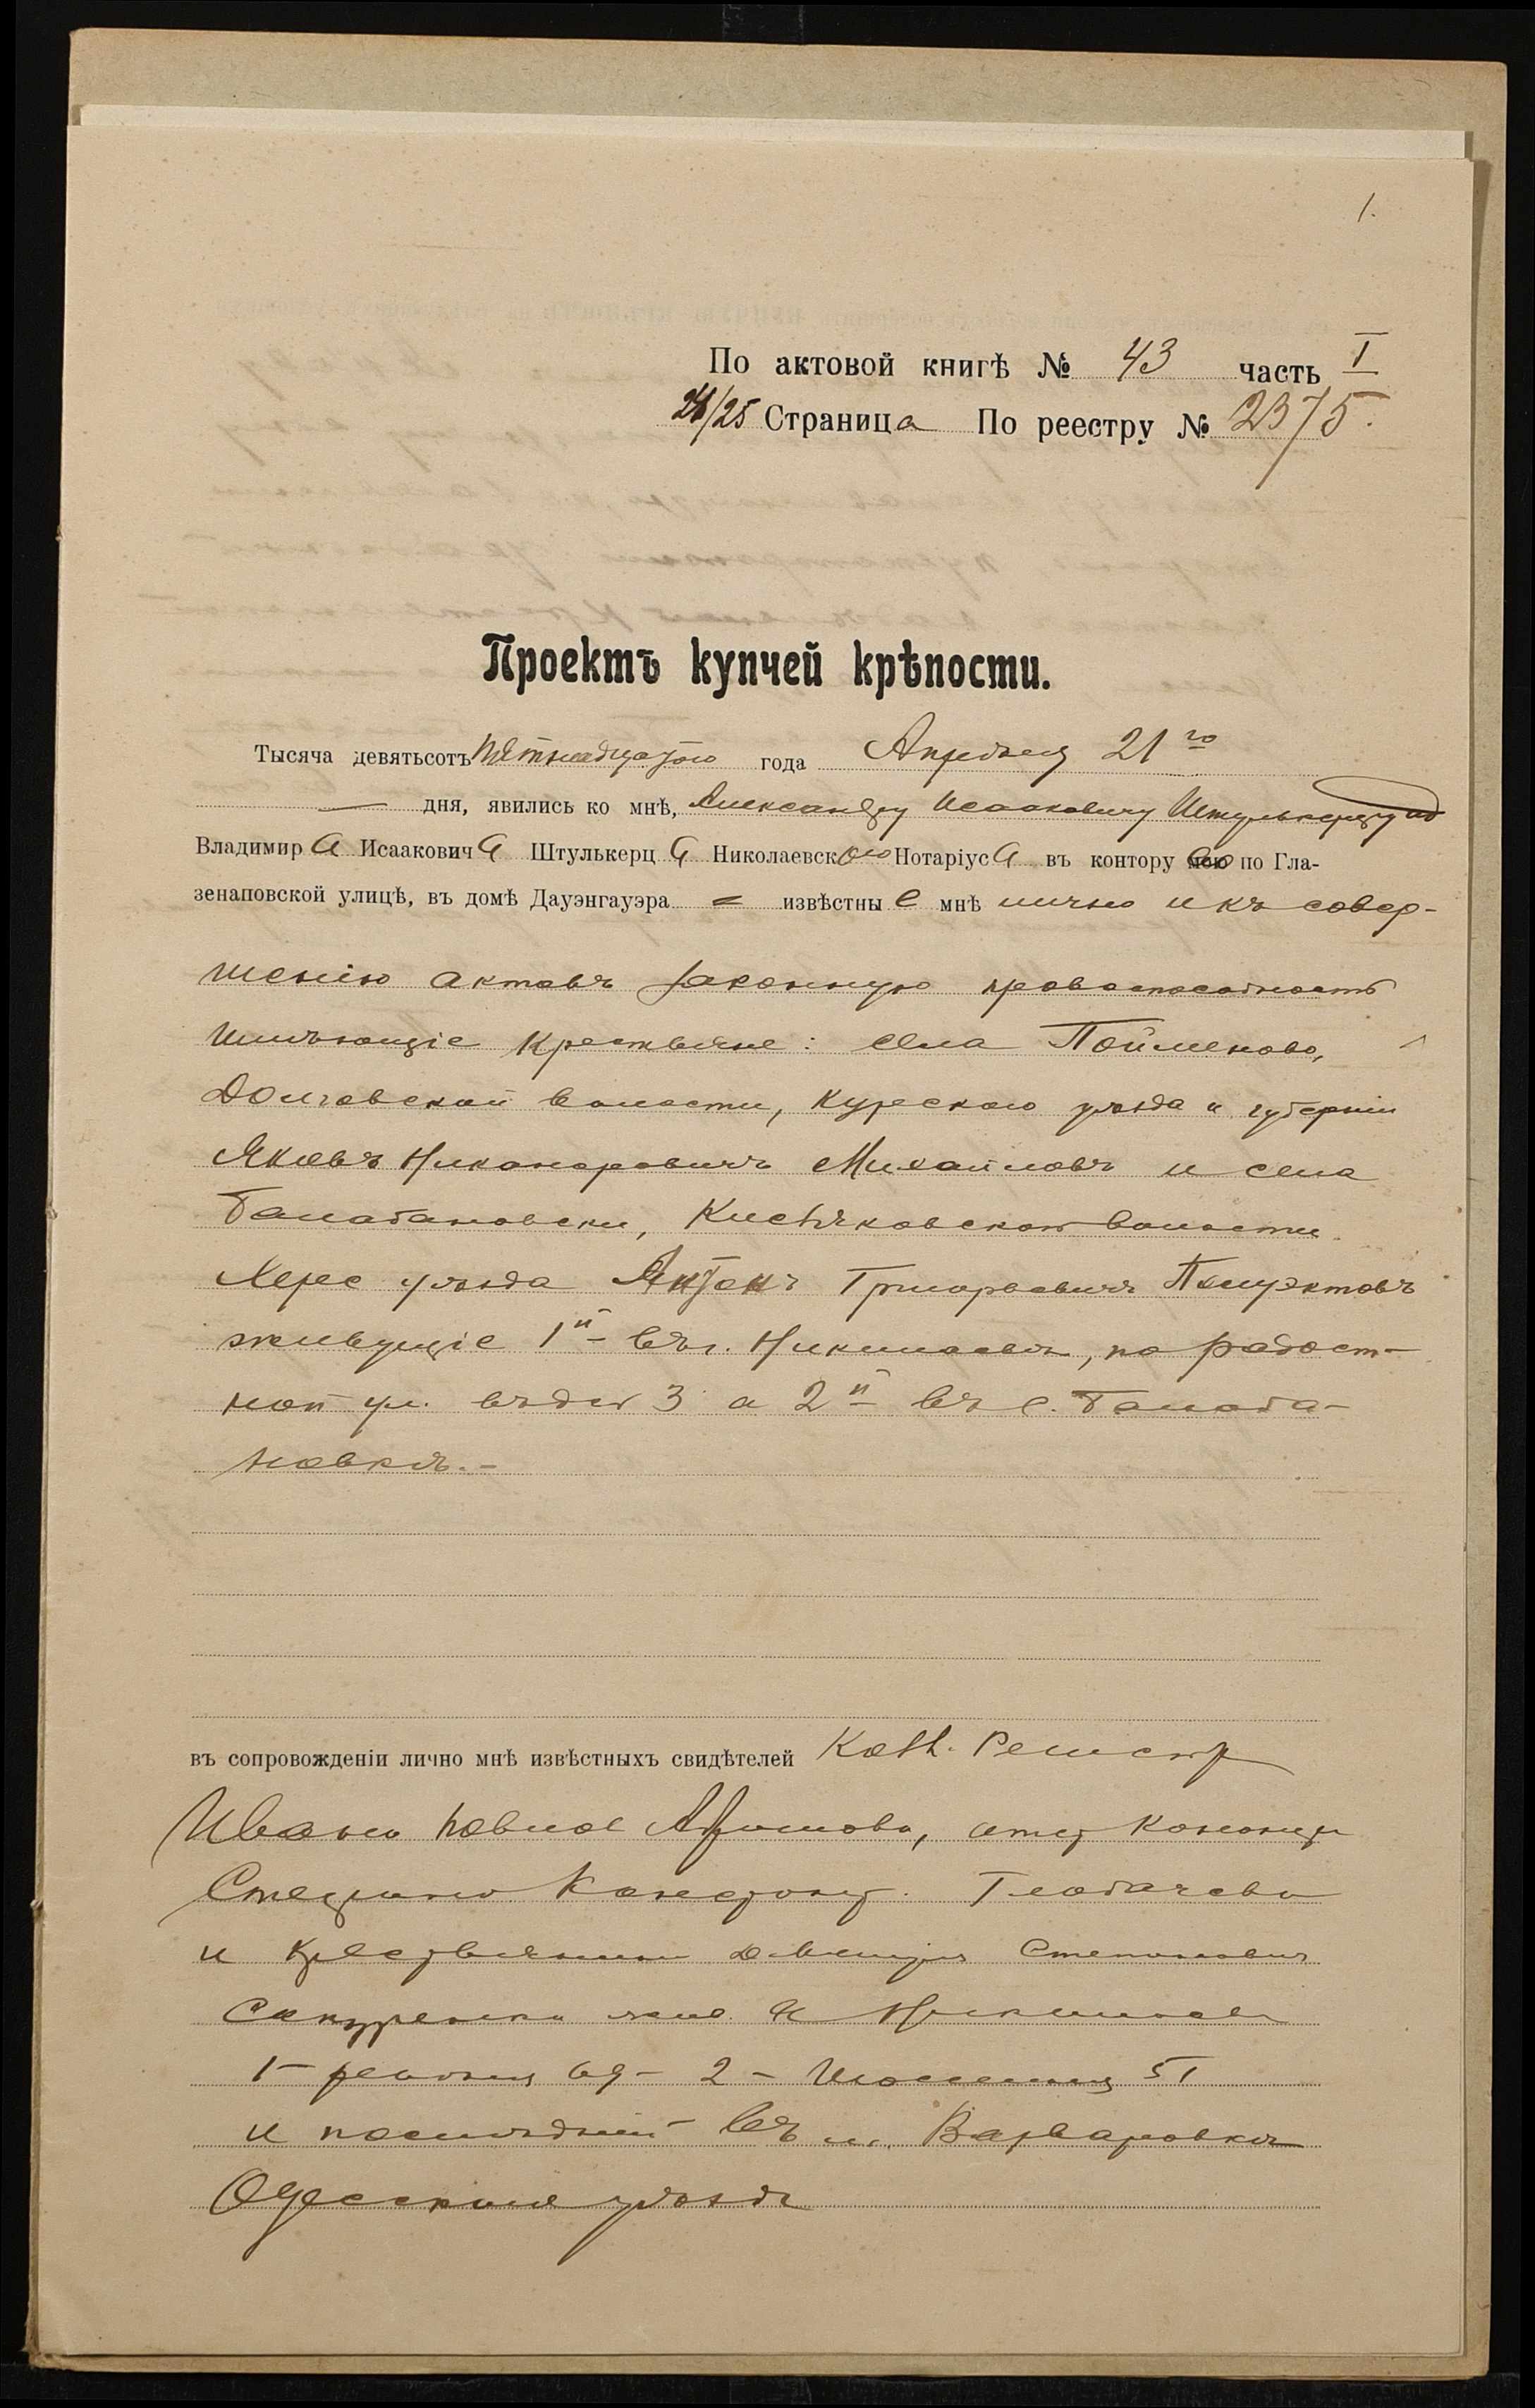 1.
По актовой книгѣ № 43 часть I
24/25 Страница По реестру № 2375.
Проектъ купчей крѣпости.
Тысяча девятьсотъ пятнадцатого года Апрѣля 21го
— дня, явились ко мнѣ, Александру Исааковичу Штулькерцу
Владимира Исааковича Штулькерца Николаевского Нотаріуса въ контору по Гла-
зенаповской улицѣ, въ домѣ Дауэнгауэра извѣстные мнѣ лично и къ совер-
шенію актовъ законную правоспособность
имѣющіе крестьяне: села Пойменово,
Долговской волости, Курскаго уѣзда и губерніи
Яковъ Никаноровичъ Михайловъ и села
Балабановки, Кисляковской волости
Херс уѣзда Антонъ Григорьевичъ Полуэктовъ
живущіе 1й въ г. Николаевѣ, по
ной ул. въ д № 3 а 2й въ с. Балаба-
новкѣ.-
въ сопровожденіи лично мнѣ извѣстныхъ свидѣтелей Колл. Регистр
Ивана Павлов
и крестьянина Дмитрія Степановича
жив. въ Николаевѣ
1- 69- 2- 51
и послѣдній въ м. Варваровкѣ
Одесскаго уѣзда